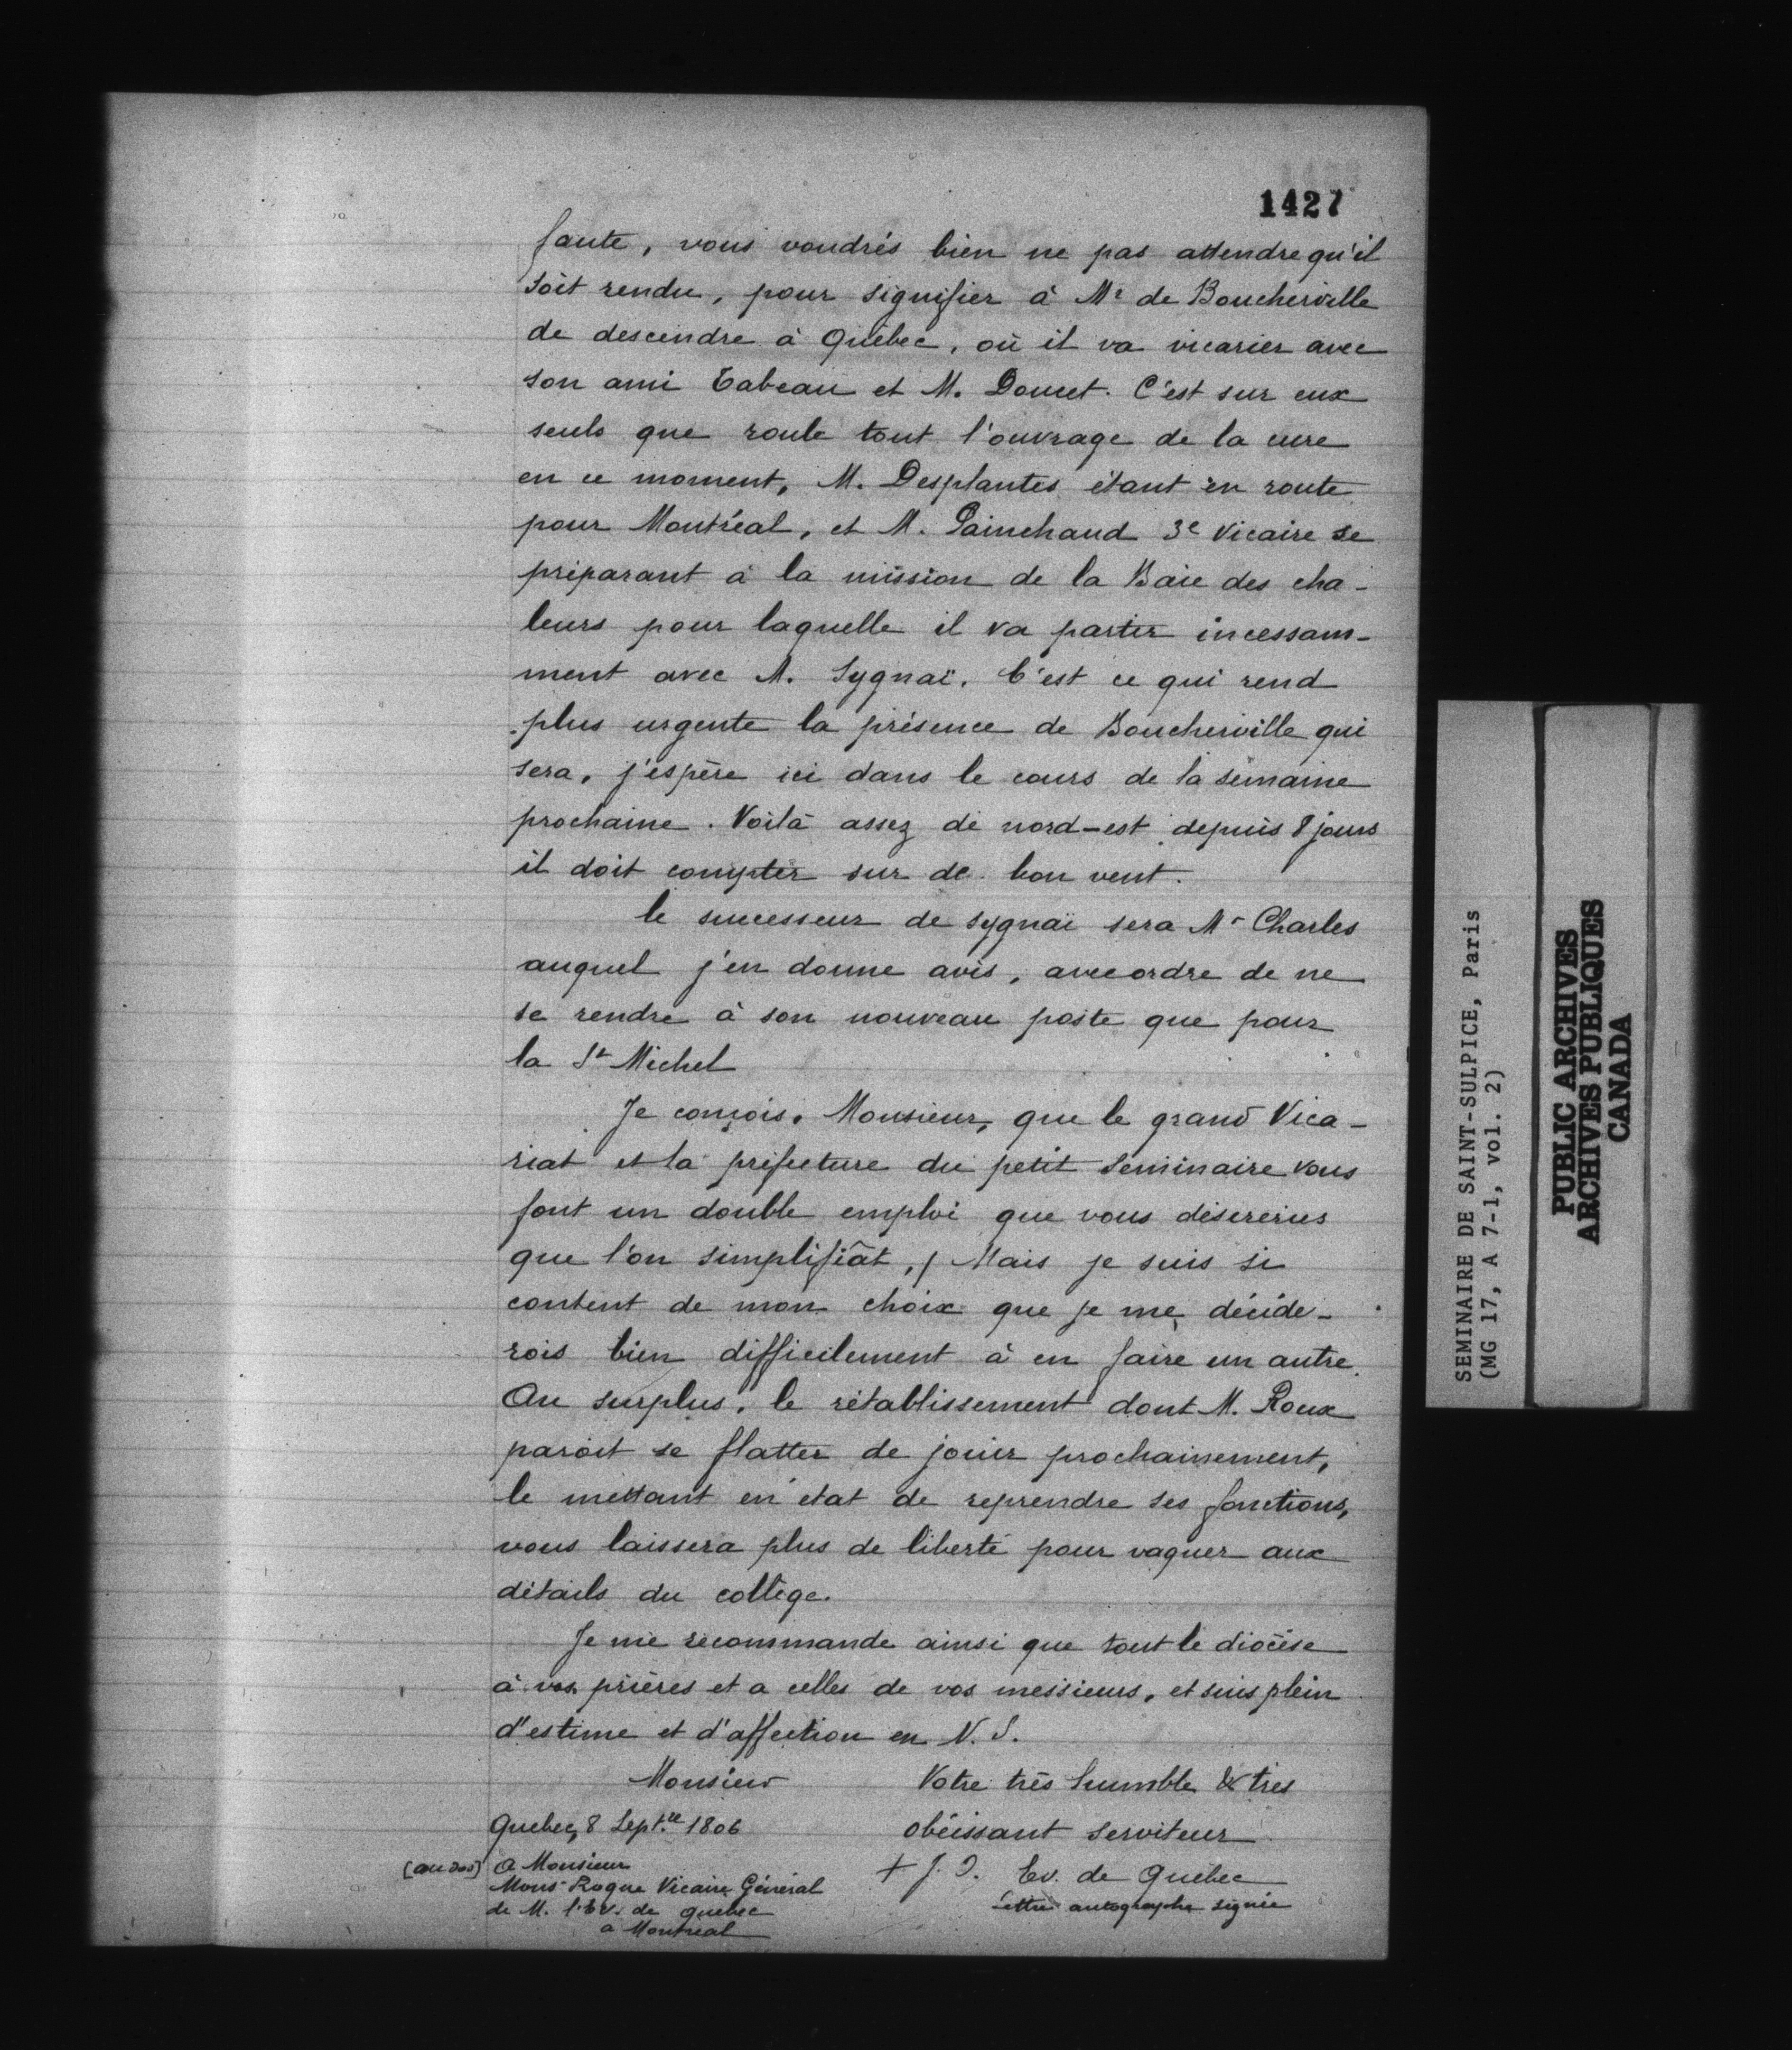 1427
faute, vous voudrés bien ne pas attendre qu'il
soit rendu, pour signifier à Mr de Boucherville
de descendre à Québec, où il va vicarier avec
son ami Tabeau et M. Doucet. C'est sur eux
seuls que roule tout l'ouvrage de la cure
en ce moment, M. Desplantes étant en route
pour Montréal, et M. Painchaud 3e Vicaire se
préparant à la mission de la Baie des cha-
leurs pour laquelle il va partir incessam-
ment avec M. Sygnaï. C'est ce qui rend
plus urgente la présence de Boucherville qui
sera, j'espère ici dans le cours de la semaine
prochaine. Voilà assez de nord-est depuis 8 jours
il doit compter sur de bon vent.
le successeur de Sygnaï sera Mr Charles
auquel j'en donne avis, avec ordre de ne
se rendre à son nouveau poste que pour
la St Michel
Je conçois, Monsieur, que le grand Vica-
riat et la préfecture du petit Séminaire vous
font un double emploi que vous désireriés
que l'on simplifiât, / Mais je suis si
content de mon choix que je me décide-
rois bien difficilement à en faire un autre.
Au surplus, le rétablissement dont M. Roux
paroit se flatter de jouir prochainement,
le mettant en état de reprendre ses fonctions,
vous laissera plus de liberté pour vaquer aux
détails du collège.
Je me recommande ainsi que tout le diocèse
à vos prières et a celles de vos messieurs, et suis plein
d'estime et d'affection en N. S.
Monsieur Votre très humble & très
Quebec, 8 Sept.re 1806 obéissant serviteur
(au dos) A Monsieur + J. O. Ev. de Québec
Monsr Roque Vicaire Général Lettre autographe signée
de M. l'Ev. de Québec
à Montréal
SEMINAIRE DE SAINT-SULPICE, Paris
(MG 17, A 7-1, vol. 2)
PUBLIC ARCHIVES
ARCHIVES PUBLIQUES
CANADA